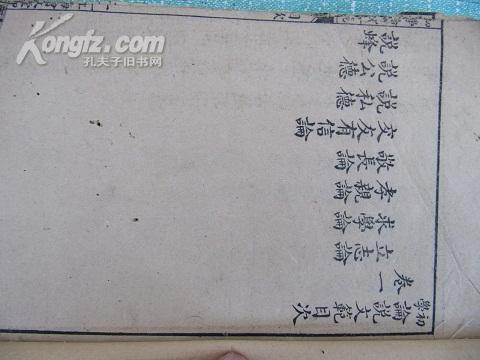 Kongfz.com
孔夫子旧书网
初學論說文範目次
卷一
立志論
求學論
孝親論
敬長論
交友有信論
說私德
說公德
說蜂
目次